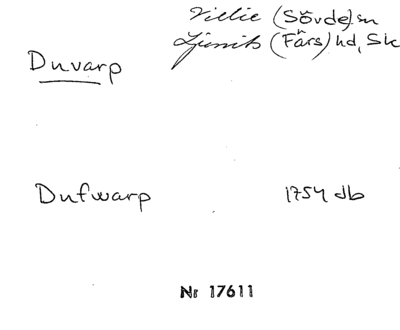 Villie (Sövde) sn
Ljunits (Färs) hd, Sk
Duvarp
Dufwarp 1754 db
Nr 17611